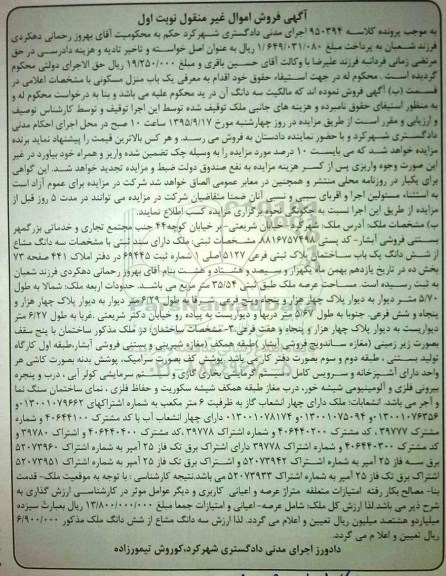 آگهی فروش اموال غیر منقول نوبت اول
به موجب پرونده کلاسه ۹۵۰۳۹۴ اجرای مدنی دادگستری شهرکرد حکم به محکومیت آقای بهروز رحمانی دهکردی
فرزند شعبان به پرداخت مبلغ ۱/۶۴۹/۰۳۱/۰۸۰ ریال به عنوان اصل خواسته و تاخیر تادیه و هزینه دادرسی در حق
مرتضی زمانی فردانبه فرزند علیرضا با وکالت آقای حسین باقری و مبلغ ۱۹/۲۵۰/۰۰۰ ریال حق الاجرای دولتی محکوم
گردیده است. محکوم له در جهت استیفاء حقوق خود اقدام به معرفی یک باب منزل مسکونی با مشخصات اعلامی در
قسمت (ب) آگهی فروش نموده اند که مالکیت سه دانگ آن در ید محکوم علیه می باشد و بنا به درخواست محکوم له و
به منظور استیفای حقوق نامبرده و هزینه های جانبی ملک توقیف شده توسط این اجرا توقیف و توسط کارشناس توصیف
و ارزیابی و مقرر است از طریق مزایده در روز چهارشنبه مورخ ۱۳۹۵/۹/۱۷ ساعت ۱۰ صبح در محل اجرای احکام مدنی
دادگستری شهرکرد و با حضور نماینده دادستان به فروش می رسد. و هر کس بالاترین قیمت را پیشنهاد نماید برنده
مزایده خواهد شد که می بایست ۱۰ درصد مورد مزایده را به وسیله چک تضمین شده واریز و همراه خود بیاورد در غیر
این صورت وجوه واریزی پس از کسر هزینه مزایده به نفع صندوق دولت ضبط و مزایده تجدید خواهد شد. این گواهی
برای یکبار در روزنامه محلی منتشر و همچنین در معابر عمومی الصاق خواهد شد شرکت در مزایده برای عموم آزاد است
به استثناء مسئولین اجرا و اقربای سببی و نسبی آنان ضمنا متقاضیان شرکت در مزایده می توانند در مدت ۵ روز قبل از
مزایده از طریق این اجرا نسبت به چگونگی نحوه برگزاری مزایده کسب اطلاع نمایند.
ب) مشخصات ملک: آدرس ملک: شهرکرد خیابان شریعتی- بر خیابان کوچه ۴۴ جنب مجتمع تجاری و خدماتی بزرگمهر
بستنی فروشی آیشار- کد پستی ۸۸۱۶۷۵۷۴۹۸ مشخصات ثبتی: ملک دارای سند ثبتی با مشخصات سه دانگ مشاع
از شش دانگ یک باب ساختمان پلاک ثبتی فرعی ۵۱۲۷ اصلی ۱ شماره ثبت ۶۹۴۴۵ در دفتر املاک ۴۴۱ صفحه ۷۳
بخش ده در تاریخ یازدهم بهمن ماه یکهزار و سیصد و هشتاد و هشت بنام آقای بهروز رحمانی دهکردی فرزند شعبان
به ثبت رسیده است. مساحت عرصه ملک طبق ثبتی ۳۵/۵۴ متر مربع می باشد. حدودات اربعه ملک: شمالا به طول
۵/۷۰ متر دیوار به دیوار پلاک چهار هزار و پنجاه و پنج فرعی. شرقا به طول ۶/۲۹ متر دیوار به دیوار پلاک چهار هزار و
پنجاه و شش فرعی. جنوبا به طول ۵/۶۷ متر دربها و دیواریست به پیاده رو خیابان دکتر شریعتی. غربا به طول ۶/۲۷ متر
دیواریست به دیوار پلاک چهار هزار و پنجاه و هفت فرعی. ۳- مشخصات ساختمان: در ملک مذکور ساختمان با پنج سقف
بصورت زیر زمینی (مغازه ساندویچ فروشی آبشار) طبقه همکف (مغازه شیرینی و بستنی فروشی آبشار، طبقه اول کارگاه
تولید بستنی، طبقه دوم و سوم بصورت دفتر کار می باشد. پوشش کف بصورت سرامیک، پوشش بدنه بصورت کاشی هر
واحد دارای آشپزخانه و سرویس کامل سیستم گرمایش بخاری گازی و سیستم سرمایشی کولر آبی، درب و پنجره
بیرونی فلزی و آلومینیومی شیشه خور، درب مغاز طبقه همکف شیشه سکوریت و حفاظ فلزی، نمای ساختمان سنگ نما
و آجر می باشد. انشعابات: ملک دارای چهار انشعاب گاز به ظرفیت ۶ متر مکعب به شماره اشتراکهای ۰۰۱۳۰۰۱۰۷۹۶۶۲و
۰۰۱۳۰۰۱۰۷۶۳۵۶ و ۰۰۱۳۰۰۱۰۷۵۰۹۴ و ۰۰۱۳۰۰۱۰۷۸۱۷۴ دارای چهار انشعاب آب با کد مشترک ۴۰۶۴۴۱۰۰ و شماره
مشترک ۳۹۷۷۷ ، کد مشترک ۴۰۶۴۴۰۲۰۰ و شماره اشتراک ۳۹۷۷۸ ،کد مشترک ۴۰۶۴۴۰۴۰۰ و اشتراک ۳۹۷۸۰ و
کد مشترک ۴۰۶۴۴۰۳۰۰ و شماره اشتراک ۳۹۷۷۸ دارای اشتراک برق تک فاز ۲۵ آمپر به شماره اشتراک ۵۲۰۷۳۹۶۰
برق سه فاز ۲۵ آمپر به شماره اشتراک ۵۲۰۷۳۹۴۲ و اشتراک برق تک فاز ۲۵ آمپر به شماره اشتراک ۵۲۰۷۳۹۵۱
اشتراک برق تک فاز ۲۵ آمپر به شماره اشتراک ۵۲۰۷۳۹۳۳ می باشد.نتیجه کارشناسی : با توجه به موقعیت ملک- قدمت
بنا- مصالح بکار رفته امتیازات متعلقه متراژ عرصه و اعیانی کاربری و دیگر عوامل موثر در کارشناسی ارزش گذاری به
شرح ذیل می باشد لذا ارزش کل ملک، شامل عرصه- اعیانی و امتیازات جمعا مبلغ ۱۳/۸۰۰/۰۰۰/۰۰۰ ریال بعبارت سیزده
میلیاردو هشتصد میلیون ریال تعیین و اعلام می گردد. لذا ارزش سه دانگ مشاع از شش دانگ ملک مذکور ۶/۹۰۰/۰۰۰
ریال تعیین و اعلام می گردد.
دادورز اجرای مدنی دادگستری شهرکرد،کوروش تیمورزاده